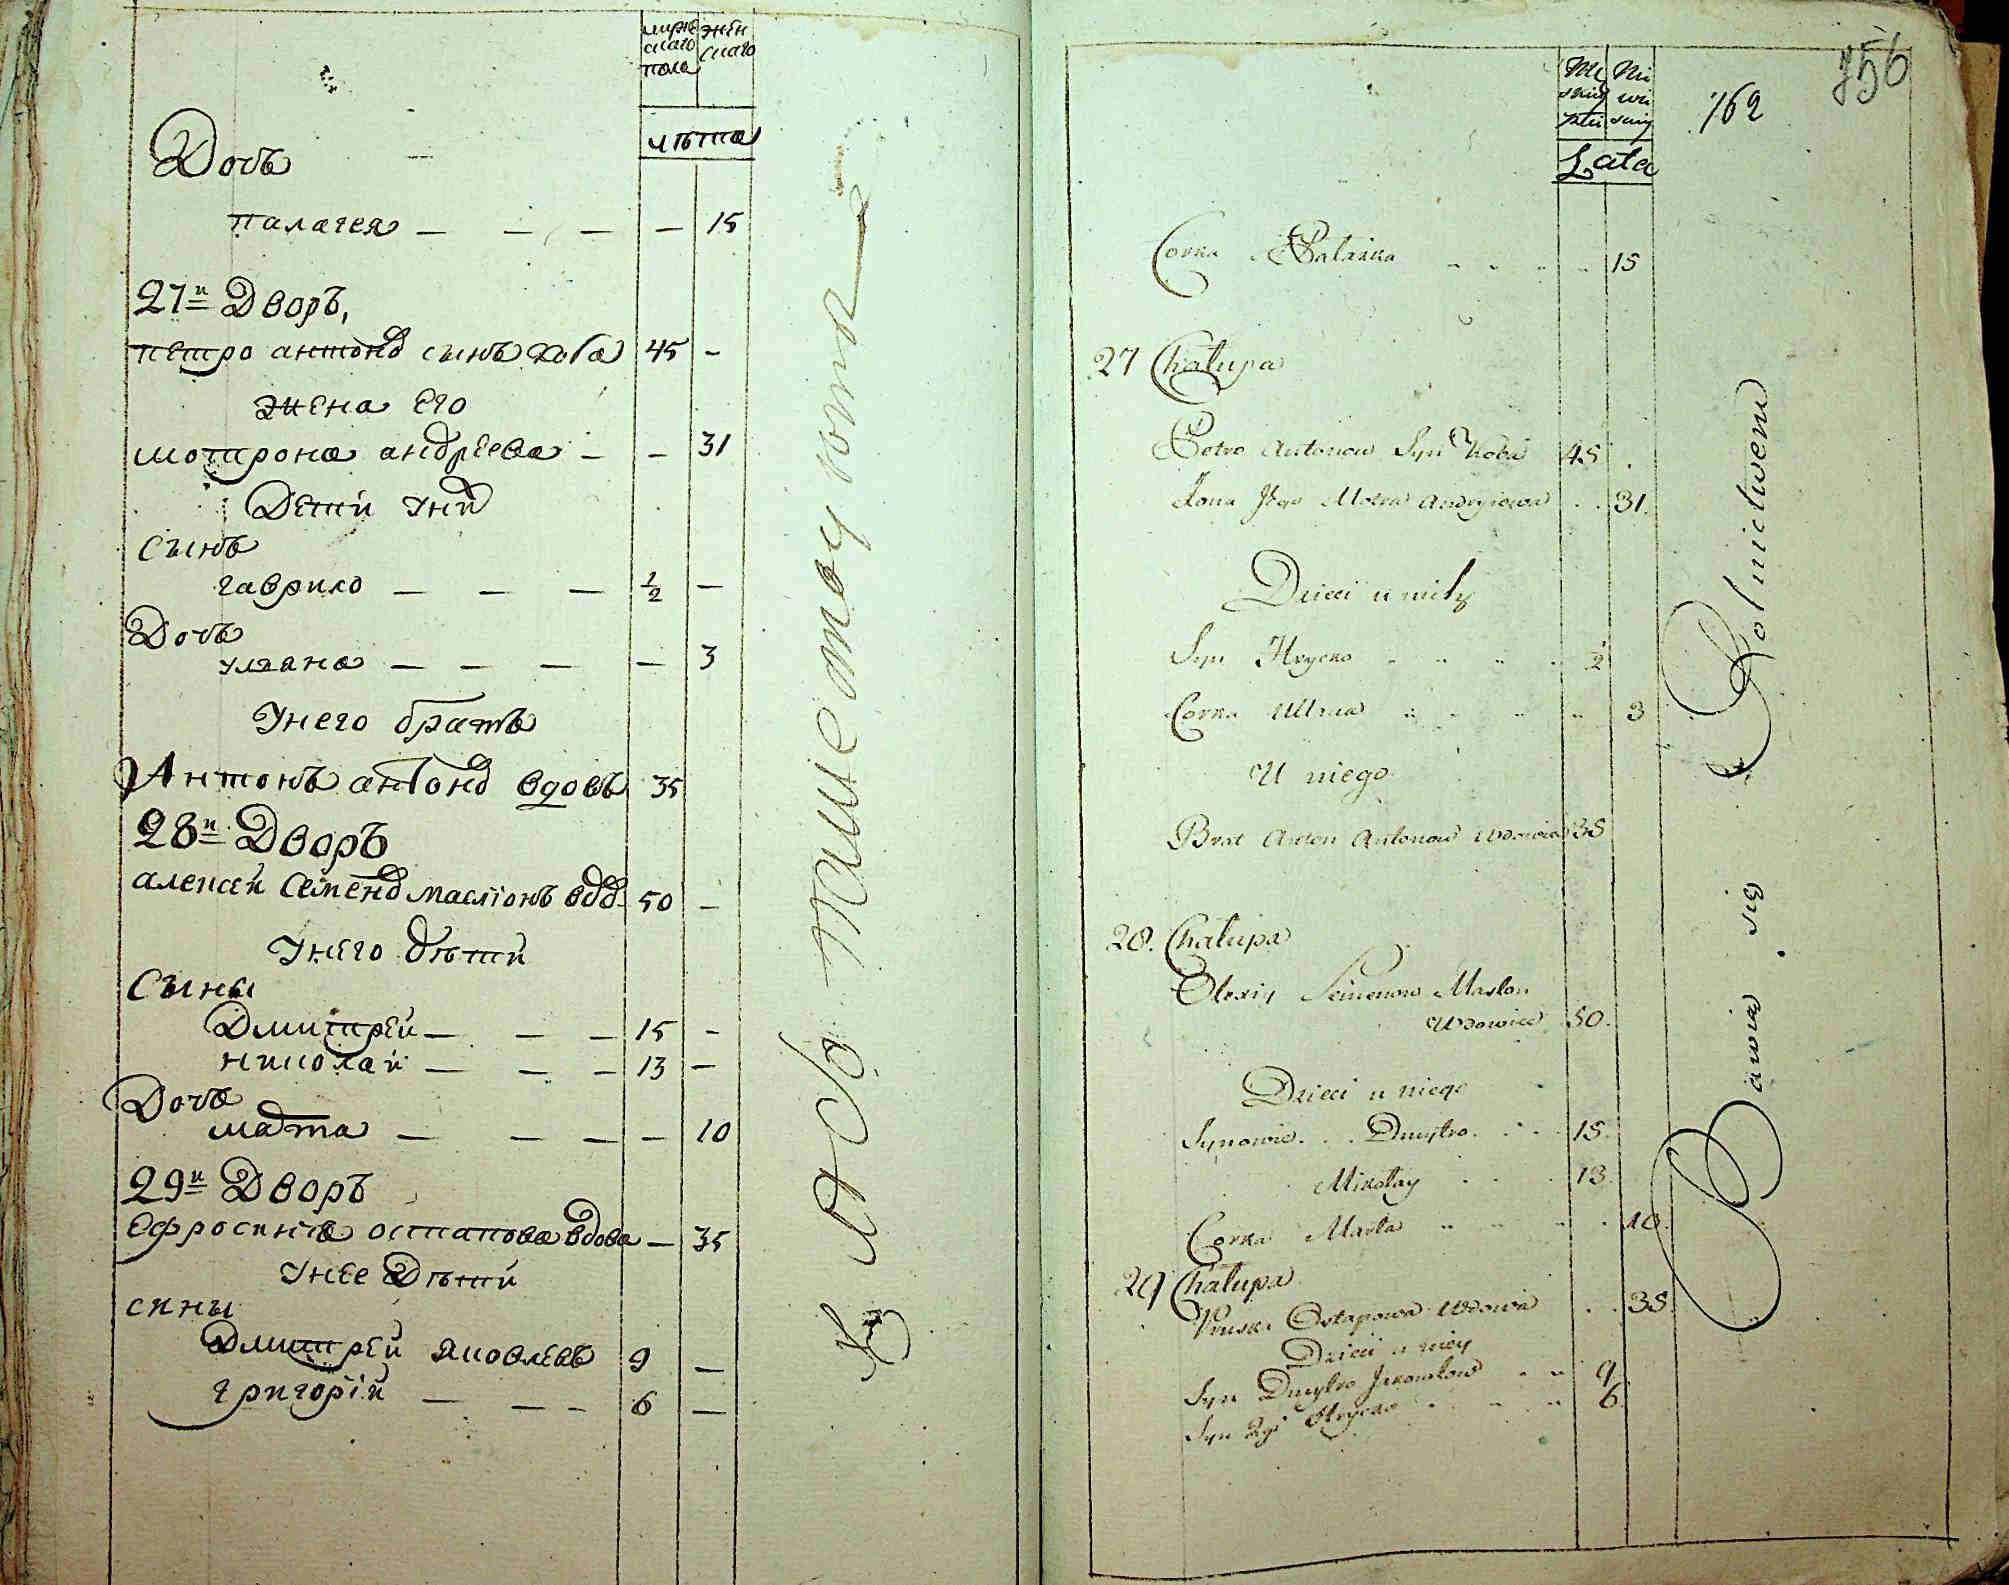 мужескаго пола
женскаго
лѣта
Дочь
палагея — — — — 15
27й Дворъ,
петро антоновъ сынъ коба 45 —
жена Его
мотрона андреева — — 31
Дети у ний
Сынъ
гаврило — — — ½ —
Дочь
ульяна — — — — 3
У него братъ
Антонъ антоновъ вдовъ 35
28й Дворъ
алексей Семеновъ масліонъ вдов. 50 —
У него дѣти
Сыны
Дмитрей — — — 15 —
николай — — — 13 —
Дочь
марта — — — — 10
29й Дворъ
Ефросиния остапова вдова — 35
У нее Дѣти
сины
Дмитрей яковлевъ 9 —
григорій — — — 6 —
Lata
162
756
Corka Palaxka 15
27 Chałupa
Petro Antonow Syn Koba 45
Żona Jego Motra Andryiowa 31
Dzieci u nich
Syn Hrycko ½
Corka Ullana 3
U niego
Brat Anton Antonow Wdowiec 35
28. Chałupa
Olexiy Semenow Maslon
Wdowiec 50.
Dzieci u niego
Synowie. Dmytro. 15.
Mikołay 13.
Corka Marta 10.
29 Chałupa
Ostapowa Wdowa 35.
Dzieci u niey
Syn Dmytro Jakowlow 9
Syn 2gi Hrycko 6.
Bawią się Rolnictwem